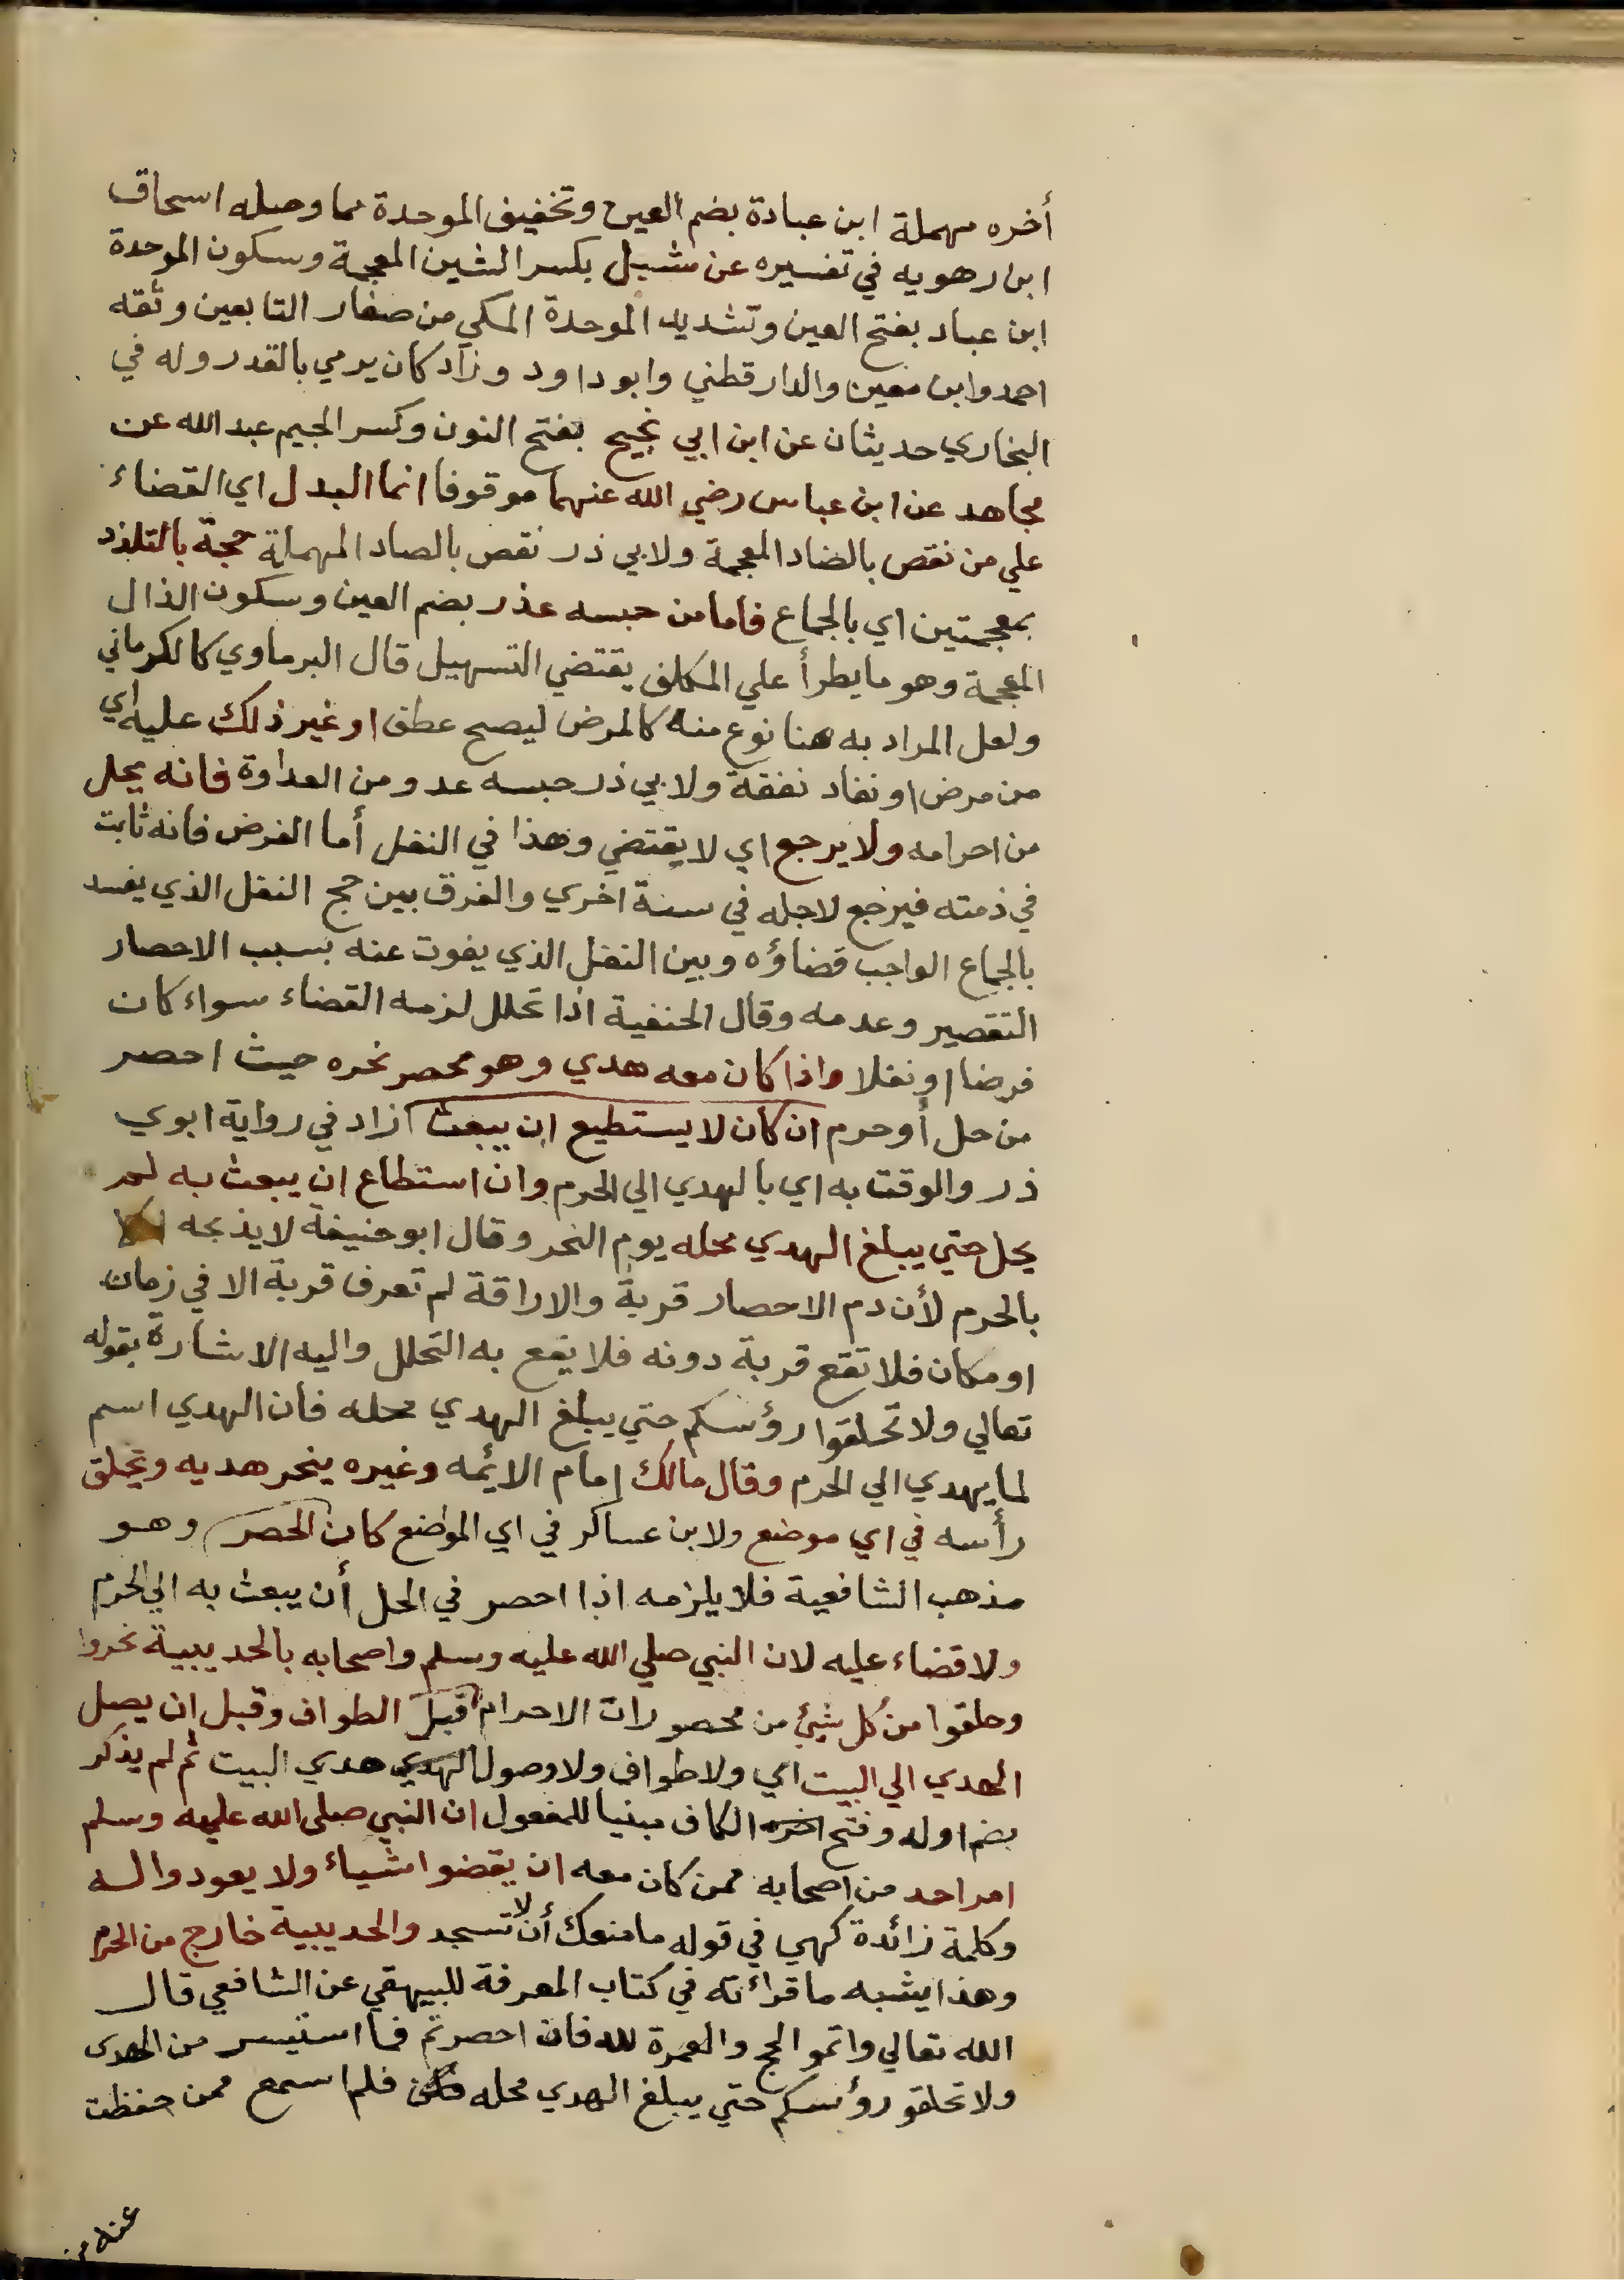 أخره مهملة ابن عبادة بضم العين وتخفيف الموحدة مما وصله اسحاق
ابن رهويه في تفسيره عن شبل بكسر الشين المعجمة وسكون الموحدة
ابن عباد بفتح العين وتشديد الموحدة المكي من صغار التابعين وثقه
احمد وابن معين والدارقطني وابو داود وزاد كان يرمي بالقدر وله في
البخاري حديثان عن ابن ابي نجيح بفتح النون وكسر الجيم عبد الله عن
مجاهد عن ابن عباس رضي الله عنهما موقوفا انما البدل اي القضاء
علي من نقص بالضاد المعجمة ولابي ذر نقص بالصاد المهملة حجة بالتلذذ
بمعجمتين اي بالجماع فاما من حبسه عذر بضم العين وسكون الذال
المعجمة وهو ما يطرأ علي المكلف يقتضي التسهيل قال البرماوي كالكرماني
ولعل المراد به هنا نوع منه كالمرض ليصح عطف او غير ذلك عليه اي
من مرض او نفاد نفقة ولابي ذر حبسه عدو من العداوة فانه يحل
من احرامه ولا يرجع اي لا يقتضي وهذا في النفل أما الفرض فانه ثابت
في ذمته فيرجع لاجله في سنة اخري والفرق بين حج النفل الذي يفسد
بالجماع الواجب قضاؤه وبين النفل الذي يفوت عنه بسبب الاحصار
التقصير وعدمه وقال الحنفية اذا تحلل لزمه القضاء سواء كان
فرضا او نفلا واذا كان معه هدي وهو محصر نحره حيث احصر
من حل أو حرم ان كان لا يستطيع ان يبعث زاد في رواية ابوي
ذر والوقت به اي بالهدي الي الحرم وان استطاع ان يبعث به لم
يحل حتي يبلغ الهدي محله يوم النحر وقال ابو حنيفة لا يذبحه
بالحرم لأن دم الاحصار قربة والاراقة لم تعرف قربة الا في زمان
او مكان فلا تقع قربة دونه فلا يقع به التحلل واليه الاشارة بقوله
تعالي ولا تحلقوا رؤسكم حتي يبلغ الهدي محله فان الهدي اسم
لما يهدي الي الحرم وقال مالك إمام الائمه وغيره ينحر هديه ويحلق
رأسه في اي موضع ولابن عساكر في اي المواضع كان الحصر وهو
مذهب الشافعية فلا يلزمه اذا احصر في الحل أن يبعث به الي الحرم
ولا قضاء عليه لان النبي صلي الله عليه وسلم واصحابه بالحديبية نحروا
وحلقوا من كل شيئ من محصورات الاحرام قبل الطواف وقبل ان يصل
الهدي الي البيت اي ولا طواف ولا وصول الهدي هدي البيت ثم لم يذكر
بضم اوله وفتح اخره الكاف مبنيا للمفعول ان النبي صلى الله عليه وسلم
امر احد من اصحابه ممن كان معه ان يقضوا شياء ولا يعودوا له
وكلمة زائدة كهي في قوله ما منعك أن لا تسجد والحديبية خارج من الحرم
وهذا يشبه ما قرأته في كتاب المعرفة للبيهقي عن الشافعي قال
الله تعالي واتمو الحج والعمرة لله فان احصرتم فما استيسر من الهدى
ولا تحلقو رؤسكم حتي يبلغ الهدي محله فلم اسمع ممن حفظت
عنه من